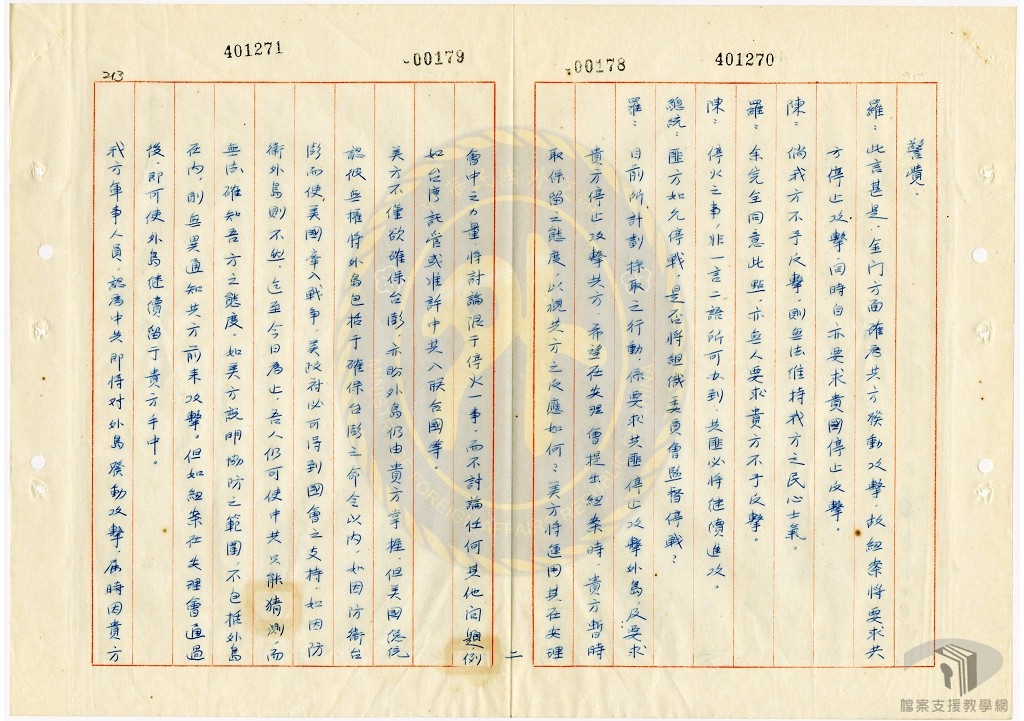 401271
00179
00178
401270
213
贊賞。
羅：此言甚是，金門方面確為共方發動攻擊，故紐案將要求共
方停止攻擊，同時自亦要求貴國停止反擊。
陳：倘我方不予反擊，則無法維持我方之民心士氣。
羅：余完全同意此點，亦無人要求貴方不予反擊。
陳：停火之事，非一言二語所可办到，共匪必將継續進攻。
總統：匪方如允停戰，是否將組織委員會監督停戰？
羅：目前所計劃採取之行動，係要求共匪停止攻擊外島，反要求
貴方停止攻擊共方，希望在安理會提出紐案時，貴方暫時
取保留之態度，以視共方之反應如何？美方將運用其在安理
二
會中之力量，將討論限于停火一事，而不討論任何其他问題，例
如台湾託管或准許中共入联合國等。
美方不僅欲確保台澎，亦盼外島仍由貴方掌握，但美國總統
認彼無權將外島包括于確保台澎之命令以内，如因防衛台
澎而使美國牽入戰爭，美政府必可得到國會之支持，如因防
衛外島則不然，迄至今日為止，吾人仍可使中共只能猜測，而
無法確知吾方之態度，如美方說明協防之範圍，不包括外島
在内，則無異通知共方前來攻擊。但如紐案在安理會通過
後，即可使外島继續留于貴方手中。
我方軍事人員，認為中共即將对外島發動攻擊，屆時因貴方
檔案支援教學網